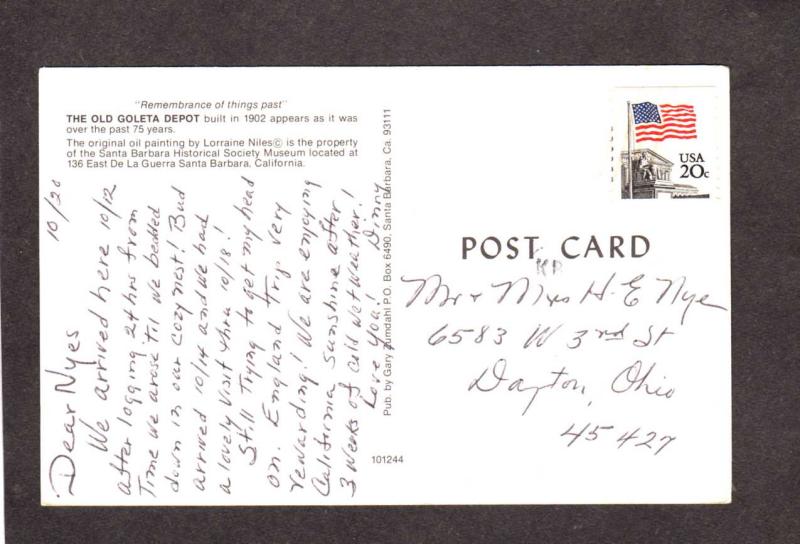 "Remembrance of things past"
THE OLD GOLETA DEPOT built in 1902 appears as it was
over the past 75 years.
The original oil painting by Lorraine Niles© is the property
of the Santa Barbara Historical Society Museum located at
136 East De La Guerra Santa Barbara, California.
10/20
Dear Nyes
We arrived here 10/12
after logging 24 hrs from
Time we arose 'Til we bedded
down in our cozy nest! Bud
arrived 10/14 and we had
a lovely visit thru 10/18!
Still Trying to get my head
on. England Trip very
rewarding! We are enjoying
California sunshine after
3 weeks of cold wet weather!
Love you! Dinny
Pub. by Gary Zumdahl P.O. Box 6490, Santa Barbara, Ca. 93111
101244
USA
20c
POST CARD
Mr + Mrs H. E Nye
6583 W 3rd St
Dayton, Ohio
45427